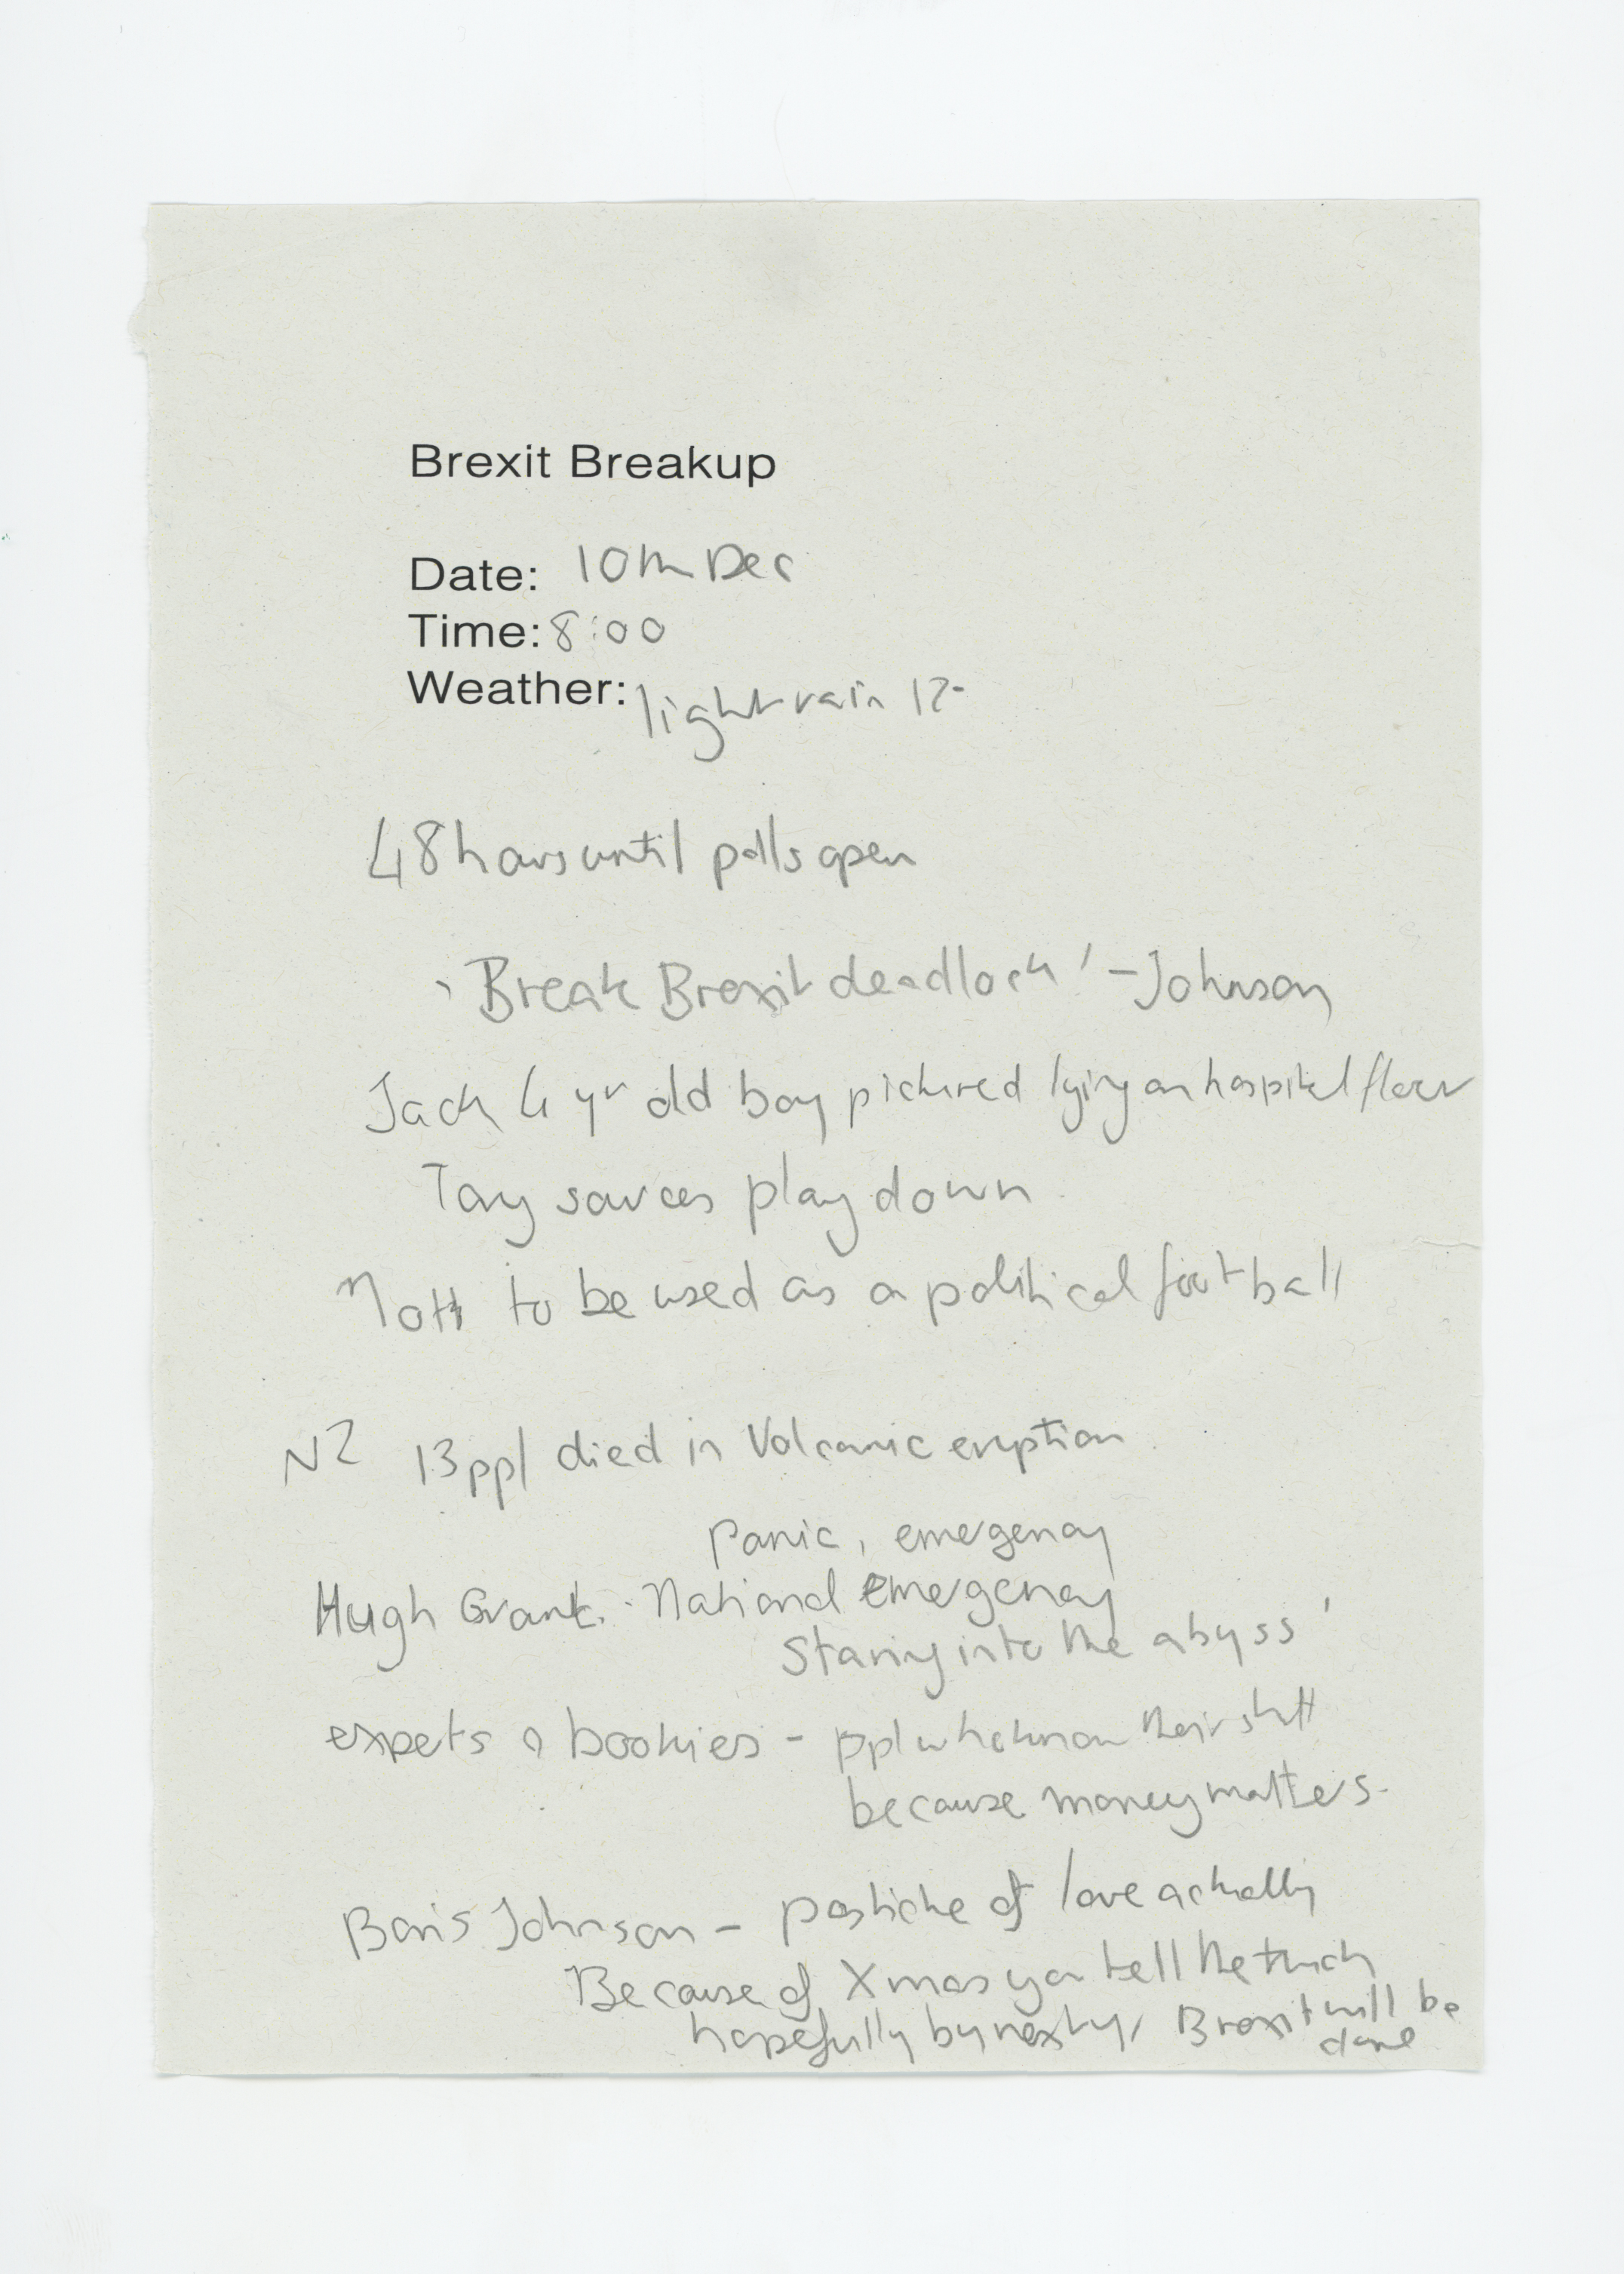 Brexit Breakup
Date: 10th Dec
Time: 8:00
Weather: light rain 12°
48 hours until polls open
'Break Brexit deadlock' - Johnson
Jack 4 yr old boy pictured lying on hospital floor
Tory sources play down
to be used as a political football
NZ 13 ppl died in Volcanic eruption
panic, emergency
Hugh Grant. National emergency
Staring into the abyss'
expets & bookies - ppl who know their
because money matters.
Boris Johnson - pastiche of love actually
Because of Xmas you tell the
hopefully by next yr Brexit will be
done